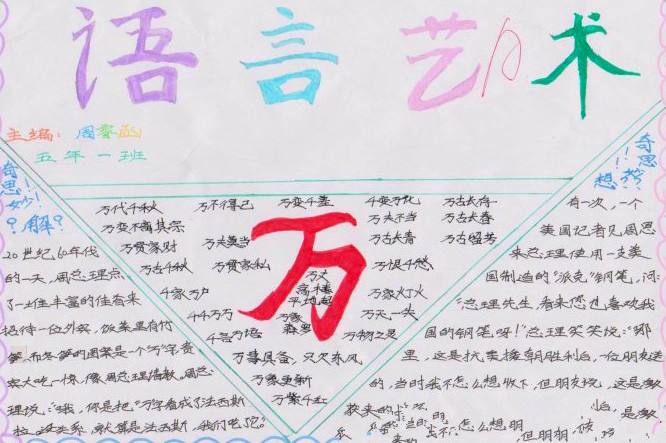 语言艺术
主编：周睿函
五年一班
奇思妙解
奇思妙想
万代千秋 万不得已 万变千差 千变万化 万古长存
万变不离其宗 万夫不当 万古长春
万贯家财 万夫莫当 万古长青 万古留芳
万古千秋 万贯家私 万恨千愁
千家万户 万丈高楼平地起 万家灯火
万
千千万万 万象森罗 万无一失
千言万语 万物之灵
万事具备，只欠东风
万象更新
万紫千红
20世纪60年代
的一天，周总理点
了一桌丰富的佳肴来
招待一位外宾，饭菜里有竹
笋，而冬笋的图案是一个"万"字，贵
宾大吃一惊，像周总理请教。周总
理说："哦，你是把"万"字看成了法西斯
啦，没关系，就算是法西斯，我们吃它。"
有一次，一个
美国记者见周恩
来总理使用一支美
国制造的"派克"钢笔，问：
"总理先生，看来您也喜欢我
国的钢笔呀！"总理笑笑说："那
里，这是抗美援朝胜利后，一位朋友送
的，当时我不怎么想收下，但朋友说，这是